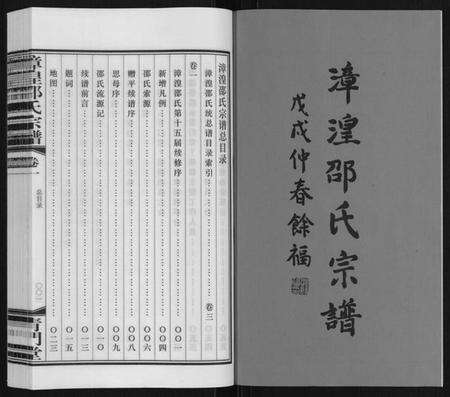 漳湟邵氏宗譜
戊戌仲春餘福
漳湟邵氏宗谱总目录
漳湟邵氏统总谱目录索引 卷三
卷一
漳湟邵氏第十五届续修序 〇〇一
新增凡例 〇〇四
邵氏索源 〇〇六
赠平续谱序 〇〇八
思母序 〇〇九
邵氏流源记 〇一〇
续谱留言 〇一三
题词 〇一五
地图 〇二三
漳湟邵氏宗谱
卷一
总目录
青門堂